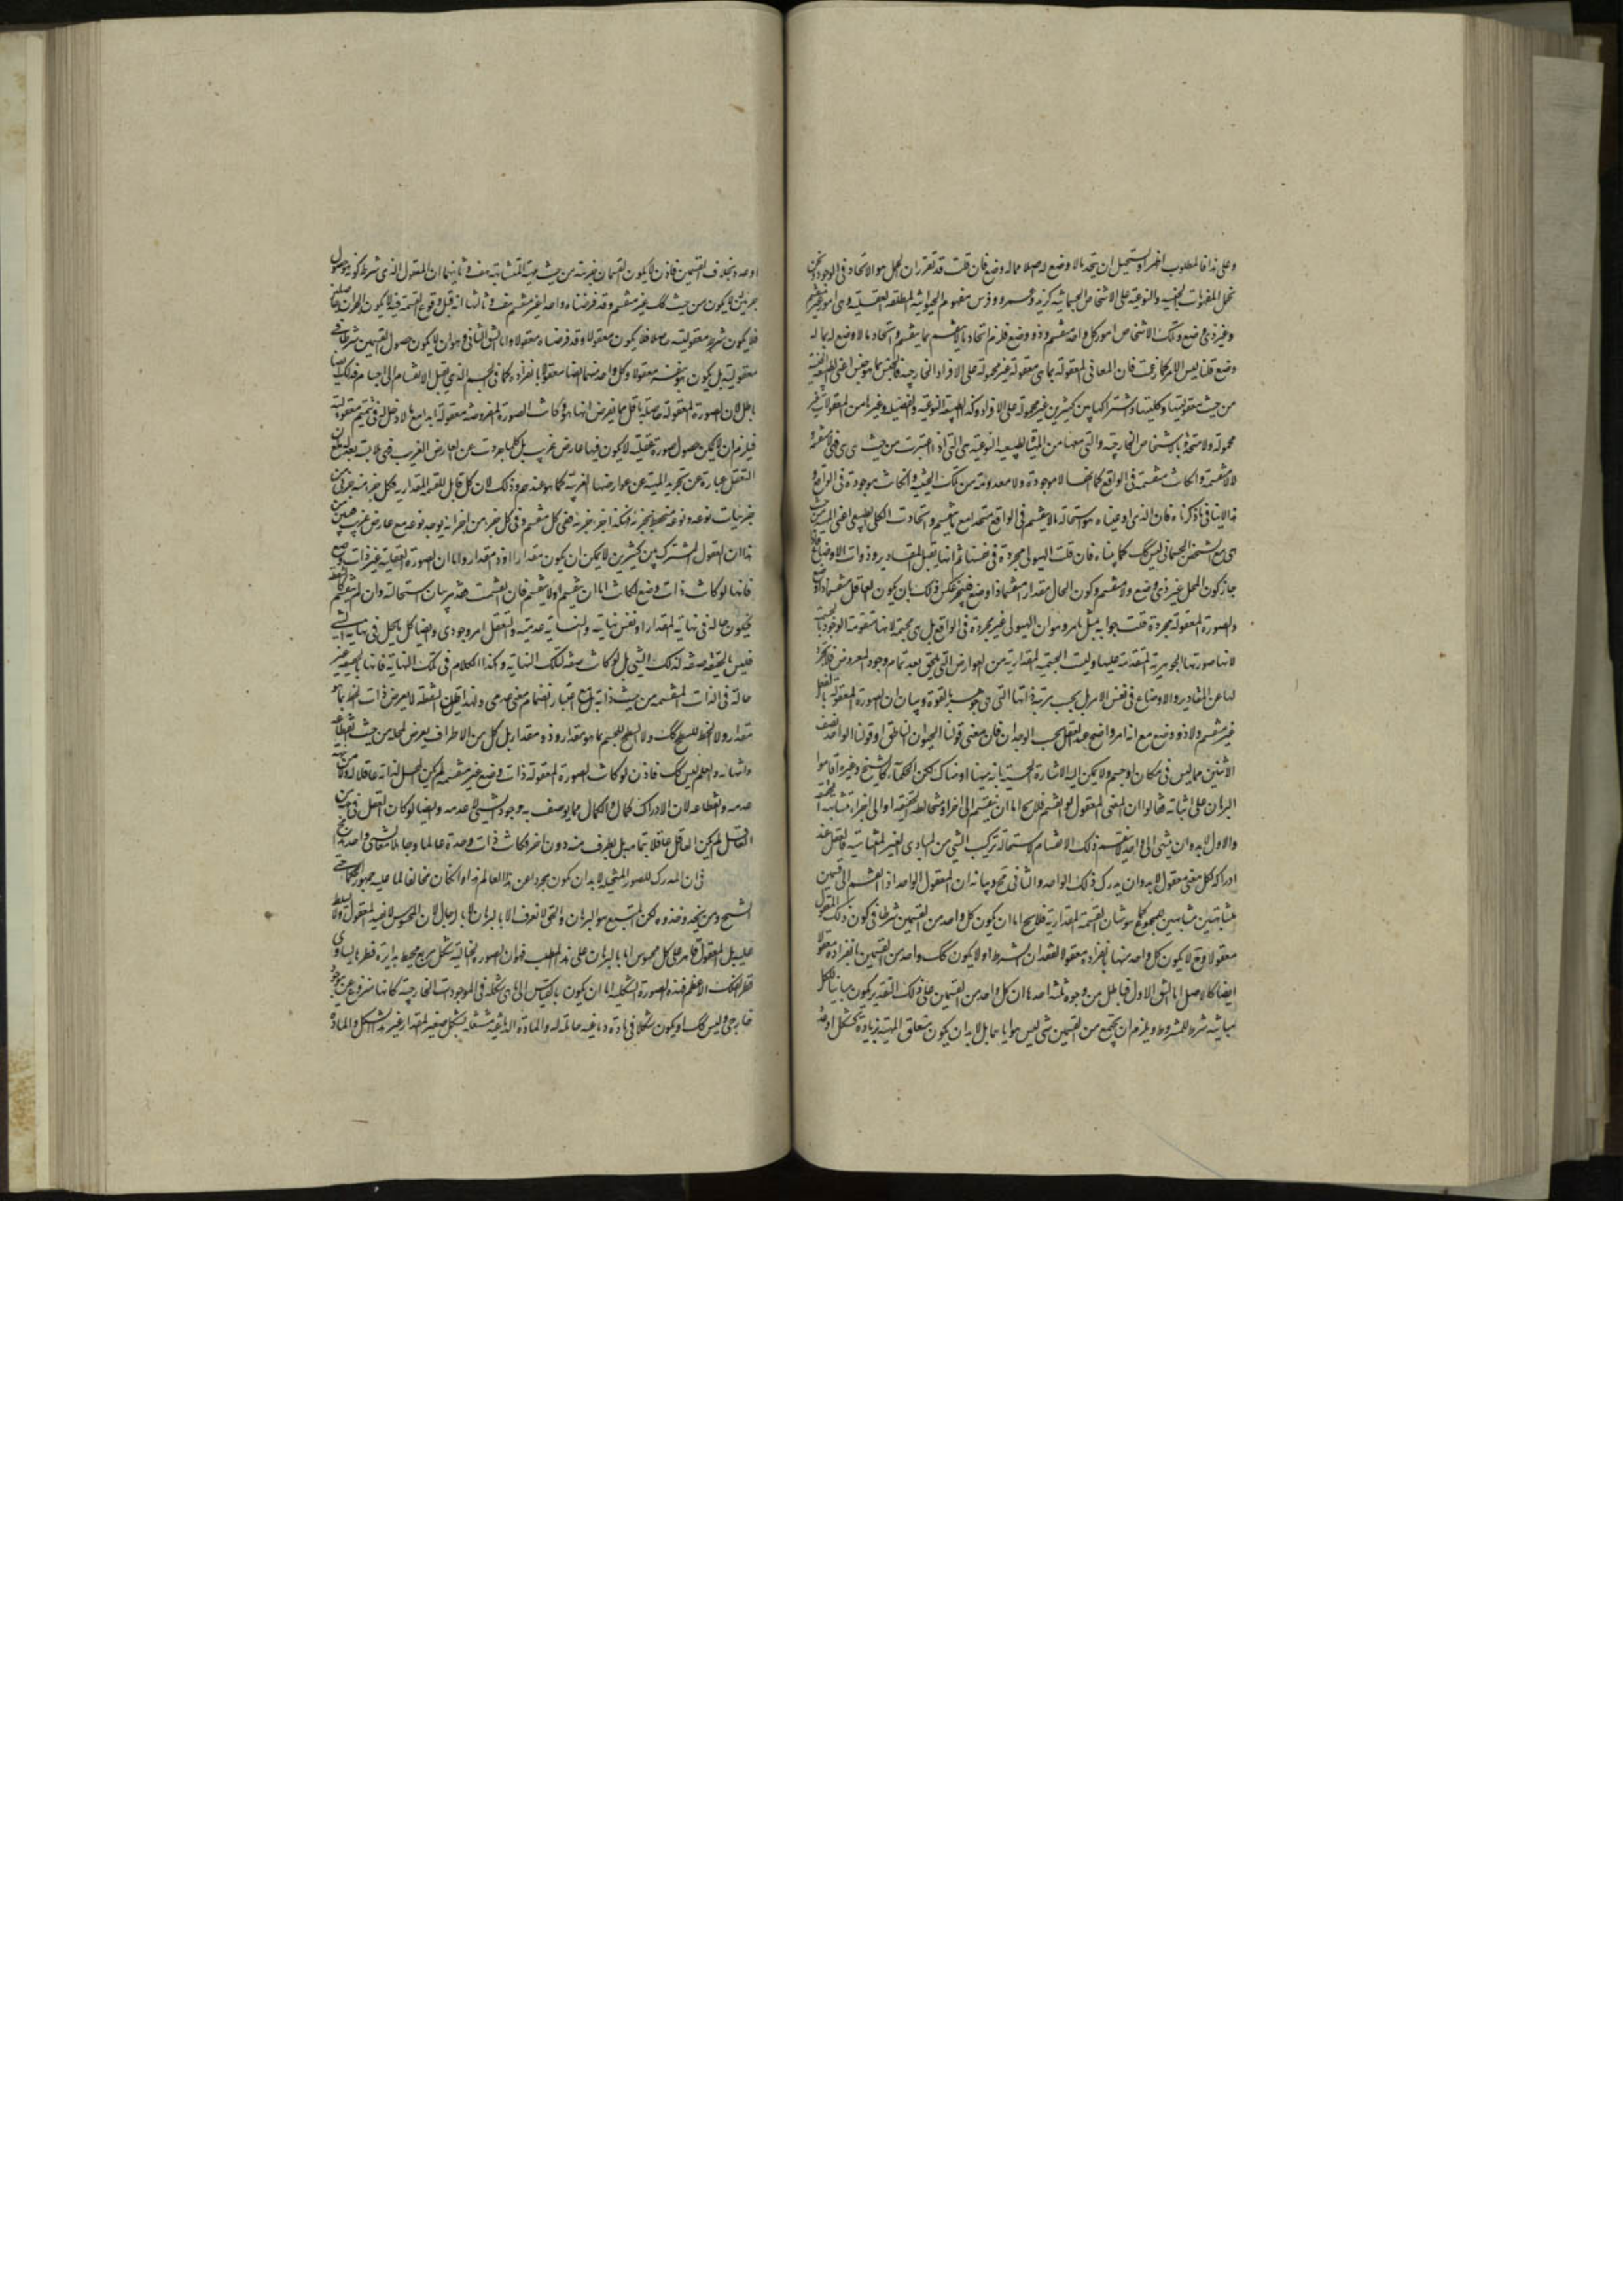 وعلى هذا فالمطلوب اظهر اذ يستحيل ان يتحد ما لا وضع له اصلا مما له وضع فان قلت قد تقرر ان الحمل هو الاتحاد فى الوجود ونحن
نحمل المفهومات الجنسية والنوعية على الاشخاص الجسمانية كزيد وعمرو وفرس مفهوم الحيوانية المطلقة العقلية وهى امور غير منقسم
وغير ذى وضع وتلك الاشخاص امور كل واحد منقسم وذو وضع فلزم اتحاد ما لا ينقسم بما ينقسم واتحاد ما لا وضع له بما له
وضع قلنا ليس الامر كما زعمت فان المعانى المعقولة بما هى معقولة غير محمولة على الافراد الخارجية فالجنس بما هو جنس اعنى الطبيعة الجنسية
من حيث معقوليتها وكليتها واشتراكها بين كثيرين غير محمولة على الافراد وكذا الطبيعة النوعية والفصلية وغيرها من المعقولات غير
محمولة ولا متحدة بالاشخاص الخارجية والتى معها من الماهية الطبيعية النوعية هى التى اذا اعتبرت من حيث هى هى فهى منقسمة
ولا منقسمة وان كانت منقسمة فى الواقع كما انها لا موجودة ولا معدومة من تلك الحيثية وان كانت موجودة فى الواقع و
هذا لا ينافى ما ذكرناه فان الذى ادعيناه هو استحالة ما لا ينقسم فى الواقع متحدا مع ما ينقسم واتحاد الكلى الطبيعى اعنى الماهية من حيث
هى مع الشخص الجسمانى ليس كك كما بيناه فان قلت الهيولى مجردة فى نفسها ثم انها يقبل المقادير وذوات الاوضاع فاذا
جاز كون المحل غير ذى وضع ولا منقسم وكون الحال مقدارا منقسما ذا وضع فليجز عكس ذلك بان يكون العاقل منقسما ذا وضع
والصورة المعقولة مجردة قلت جوابه بمثل ما مر وهو ان الهيولى غير مجردة فى الواقع بل هى مجسمة لانها متقومة الوجود بالجسمية
لانها صورتها الجوهرية المتقدمة عليها وليست الجسمية المقدارية من العوارض التى يلحق بعد تمام وجود المعروض فلا تجرد
لها عن المقادير والاوضاع فى نفس الامر بل بحسب مرتبة ذاتها التى هى جوهرية بالقوة وبيان ان الصورة المعقولة بالفعل
غير منقسم ولا ذو وضع مع انه امر واضح عند العقل بحسب الوجدان فان معنى قولنا الحيوان الناطق او قولنا الواحد نصف
الاثنين مما ليس فى مكان او جسم ولا يمكن اليه الاشارة الحسية بانه هيهنا او هناك لكن الحكماء كالشيخ وغيره اقاموا
البرهان على اثباته فقالوا ان المعنى المعقول لو انقسم فلا يخ اما ان ينقسم الى اجزاء متخالفة الحقيقة او الى اجزاء متشابهة الحقيقة
والاول لا بد وان ينتهى الى واحد لا ينقسم ذلك الانقسام لاستحالة تركيب الشئ من المبادى الغير المتناهية فالعقل عند
ادراكه لكل معنى معقول لا بد وان يدرك ذلك الواحد والثانى مح وبيانه ان المعقول الواحد اذا انقسم الى قسمين
متشابهين مشابهين لمجموع كما هو شان القسمة المقدارية فلا يخ اما ان يكون كل واحد من القسمين شرطا فى كون ذلك المعقول
معقولا وح لا يكون كل واحد منهما بانفراده معقولا لفقدان الشرط او لا يكون كك واحد من القسمين بانفراده معقولا
ايضا كالاصل اما الشق الاول فباطل من وجوه ثلثة احدها ان كل واحد من القسمين على ذلك التقدير يكون مباينا للكل
مباينة شرط للمشروط ويلزم ان يجتمع من القسمين شئ ليس هو اياهما بل لا بد ان يكون متعلق الماهية بزيادة كشكل او عدد
او حد بخلاف القسمين فاذن لا يكون القسمان جزئيه من حيث ماهيته المتشابهة هف وثانيهما ان المعقول الذى شرط كونه حصول
جزئين لا يكون من حيث كك غير منقسم وقد فرضناه واحدا غير منقسم هف وثالثها انه قبل وقوع القسمة فيه لا يكون الجزآن حاصلين
فلا يكون شرط معقوليته حاصلا فلا يكون معقولا وقد فرضناه معقولا واما الشق الثانى وهو ان لا يكون حصول القسمين شرطا فى
معقوليته بل يكون هو بنفسه معقولا وكل واحد منهما ايضا معقولا بانفراده كما فى الجسم الذى يقبل الانقسام الى اجسام فذلك ايضا
باطل لان الصورة المعقولة حاصلة باقل مما يفرض انها هو فكانت الصورة المفروضة معقولة ابدا مع ما لا دخل له فى تتميم معقوليته
فيلزم ان لا يمكن حصول صورة عقلية لا يكون فيها عارض غريب بل كلما جردت عن العارض الغريب فهى ملابسة بعد مع ان
التعقل عبارة عن تجريد الماهية عن عوارضها الغريبة كما هو عندهم وذلك لان كل قابل للقسمة المقدارية فكل جزء منه جزئى من
جزئيات نوعه ونوعه منحفظ بجزئه وبكذا جزء جزئه ففى كل منقسم وفى كل جزء من اجزائه يوجد نوعه مع عارض غريب فتبين من
هذا ان المعقول المشترك بين كثيرين لا يمكن ان يكون مقدارا او ذا مقدار واما ان الصورة العقلية غير ذات وضع
فانها لو كانت ذات وضع لكانت اما ان ينقسم او لا ينقسم فان انقسمت فقد مر بيان استحالته وان لم ينقسم كالنقطة
فيكون حالة فى نهاية المقدار او نفس نهايته والنهاية عدمية والتعقل امر وجودى وايضا كل ما يحل فى نهاية الشئ
فليس بالحقيقة صفة لذلك الشئ بل لو كانت صفة لتلك النهاية وهكذا الكلام فى تلك النهاية فانها بالحقيقة غير
حالة فى الذات المنقسمة من حيث ذاته بل مع اعتبار انضمام معنى عدمى ولهذا قيل ان النقطة لا يعرض ذات الخط بما هو
مقدار ولا الخط للسطح كك ولا السطح للجسم بما هو مقدار وذو مقدار بل كل من الاطراف يعرض لمحله من حيث انقطاعه
وانتهائه والعلم ليس كك فاذن لو كانت الصورة المعقولة ذات وضع غير منقسمة لم يكن المحل لذاته عاقلا له من جهة
عدمه وانقطاعه لان الادراك كمال والكمال مما يوصف به وجود الشئ لا عدمه وايضا لو كان التعقل فى طرف من
العاقل لم يكن العاقل عاقلا بتمامه بل بطرف منه دون اخر وكانت ذات وحدة عالما وجاهلا معا بشئ واحد هف
فى ان المدرك للصور المتخيلة لا بد ان يكون مجردا عن هذا العالم هذا وان كان مخالفا لما عليه جمهور الحكماء حتى
الشيخ ومن يحذو حذوه لكن المتبع هو البرهان والحق لا يعرف الا بالبرهان لا بالرجال لان المحسوس لا يفيد المعقول ولا يسلط
عليه بل المعقول قاهر على كل محسوس اما البرهان على هذا المطلب فهو ان الصورة الخيالية كشكل مربع محيط بدائرة قطرها يساوى
قطر الفلك الاعظم فهذه الصورة الشكلية اما ان يكون بالقياس الى ما هى شكله فى الموجودات الخارجية كانها منزوع عن موجود
خارجى وليس كك او يكون شكلا فى مادة دماغية حاملة له والمادة الدماغية مشغولة بشكل صغير المقدار غير هذا الشكل والمادة